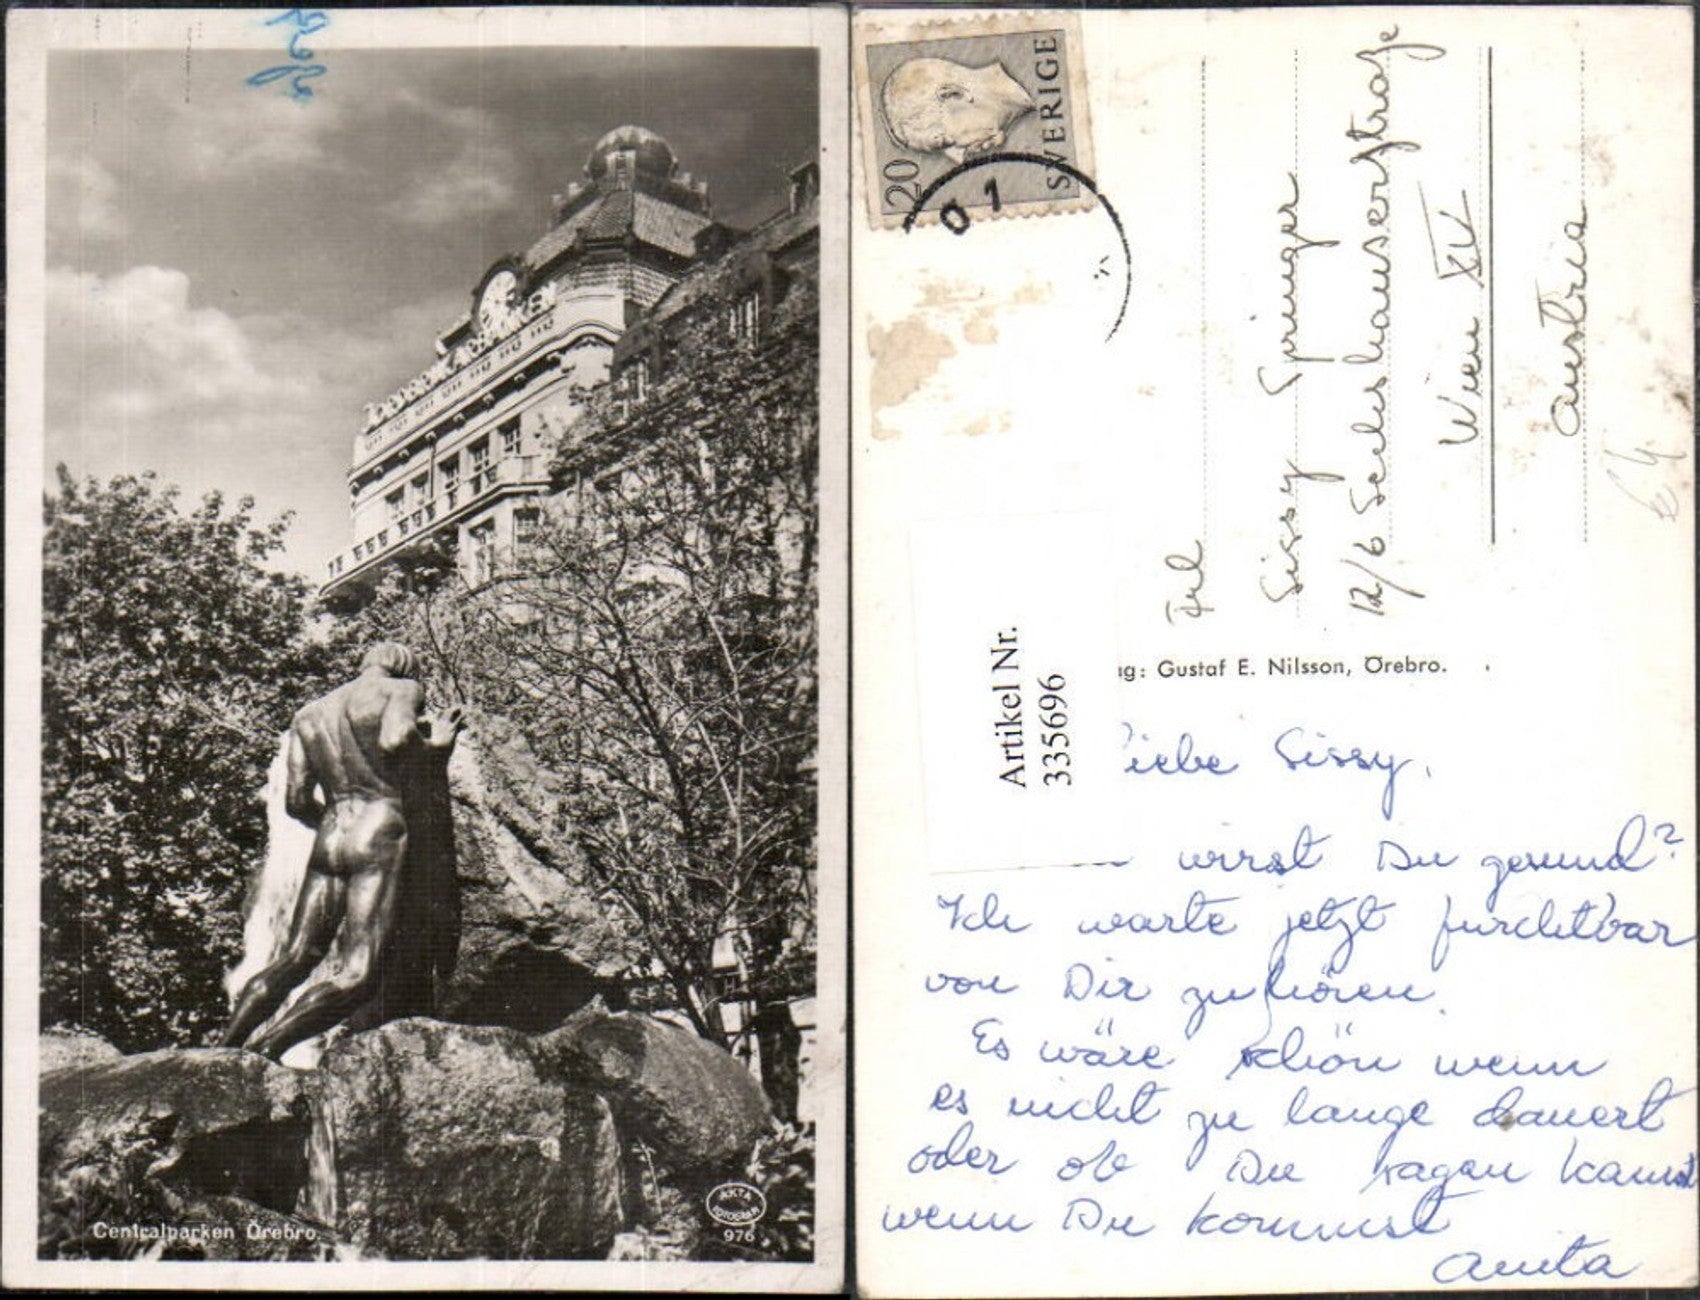 Centralparken Örebro.
ÄKTA
FOTOGRAFI
976
SVERIGE
20
Frl
Sissy Springer
12/6 Sechshauserstraße
Wien XV
Austria
Artikel Nr.
335696
ag: Gustaf E. Nilsson, Örebro.
Liebe Sissy,
wirst Du gesund?
Ich warte jetzt furchtbar
von Dir zu hören.
Es wäre schön wenn
es nicht zu lange dauert
oder ob Du sagen kannst
wenn Du kommst
Anita